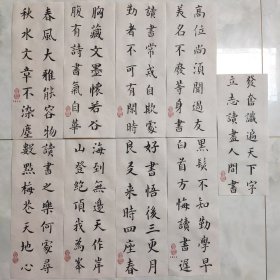 發奮識遍天下字
立志讀盡人間書
高位尚須聞過友
美名不廢等身書
讀書常戒自欺處
勤者不可有閒時
胸藏文墨懷若谷
腹有詩書氣自華
春風大雅能容物
秋水文章不染塵
黑髮不知勤學早
白首方悔讀書遲
好書悟後三更月
良友來時四座春
海到無邊天作岸
山登絕頂我為峯
讀書之樂何處尋
數點梅花天地心